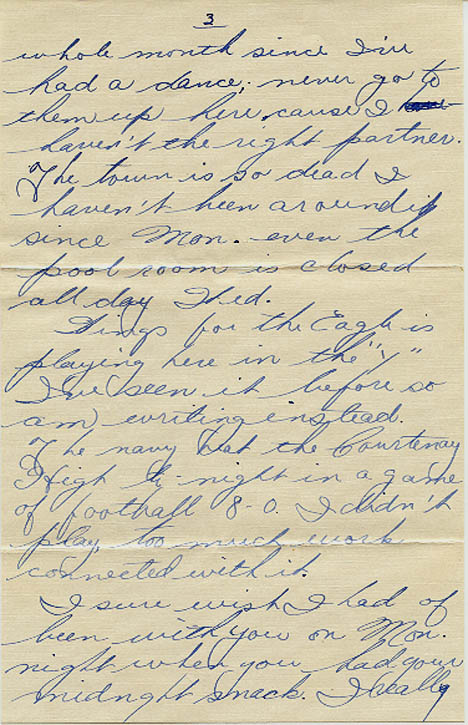 3
whole month since I've
had a dance; never go to
them up here cause I
haven't the right partner.
The town is so dead I
haven't been around it
since Mon. even the
pool room is closed
all day Wed.
Wings for the Eagle is
playing here in the "Y"
I've seen it before so
am writing instead.
The navy beat the Courtenay
High to-night in a game
of football 8-0. I didn't
play, too much work
connected with it.
I sure wish I had of
been with you on Mon.
night when you had your
midnght snack. I really